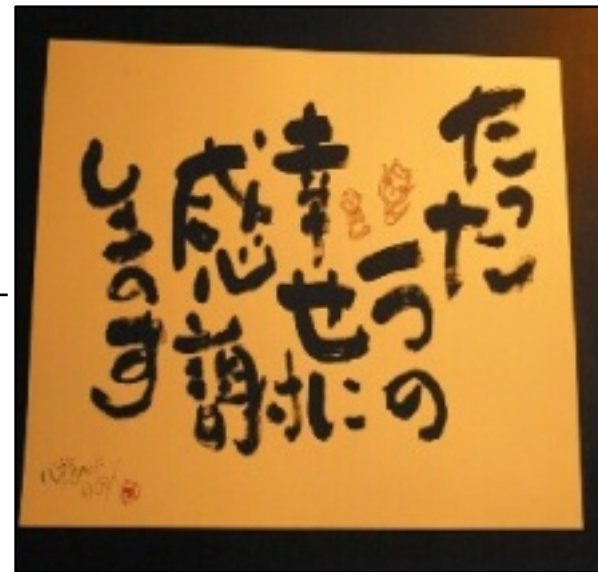 たった
一つの
幸せに
感謝
します